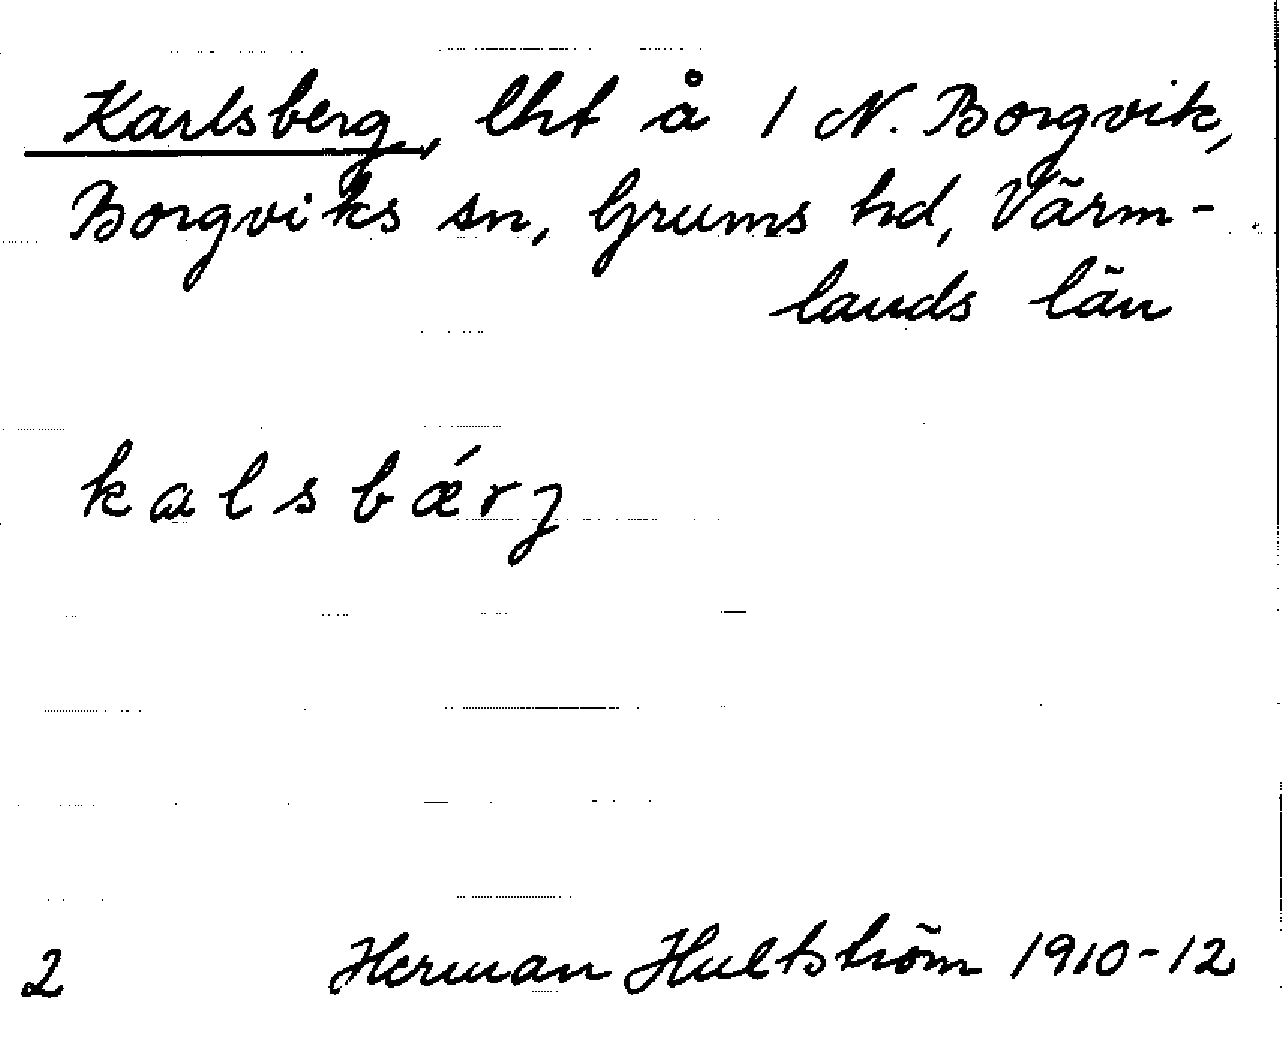 Karlsberg, lht å 1 N. Borgvik,
Borgviks sn, Grums hd, Värm-
lands län
kalsbǽrj
2 Herman Hultström 1910-12